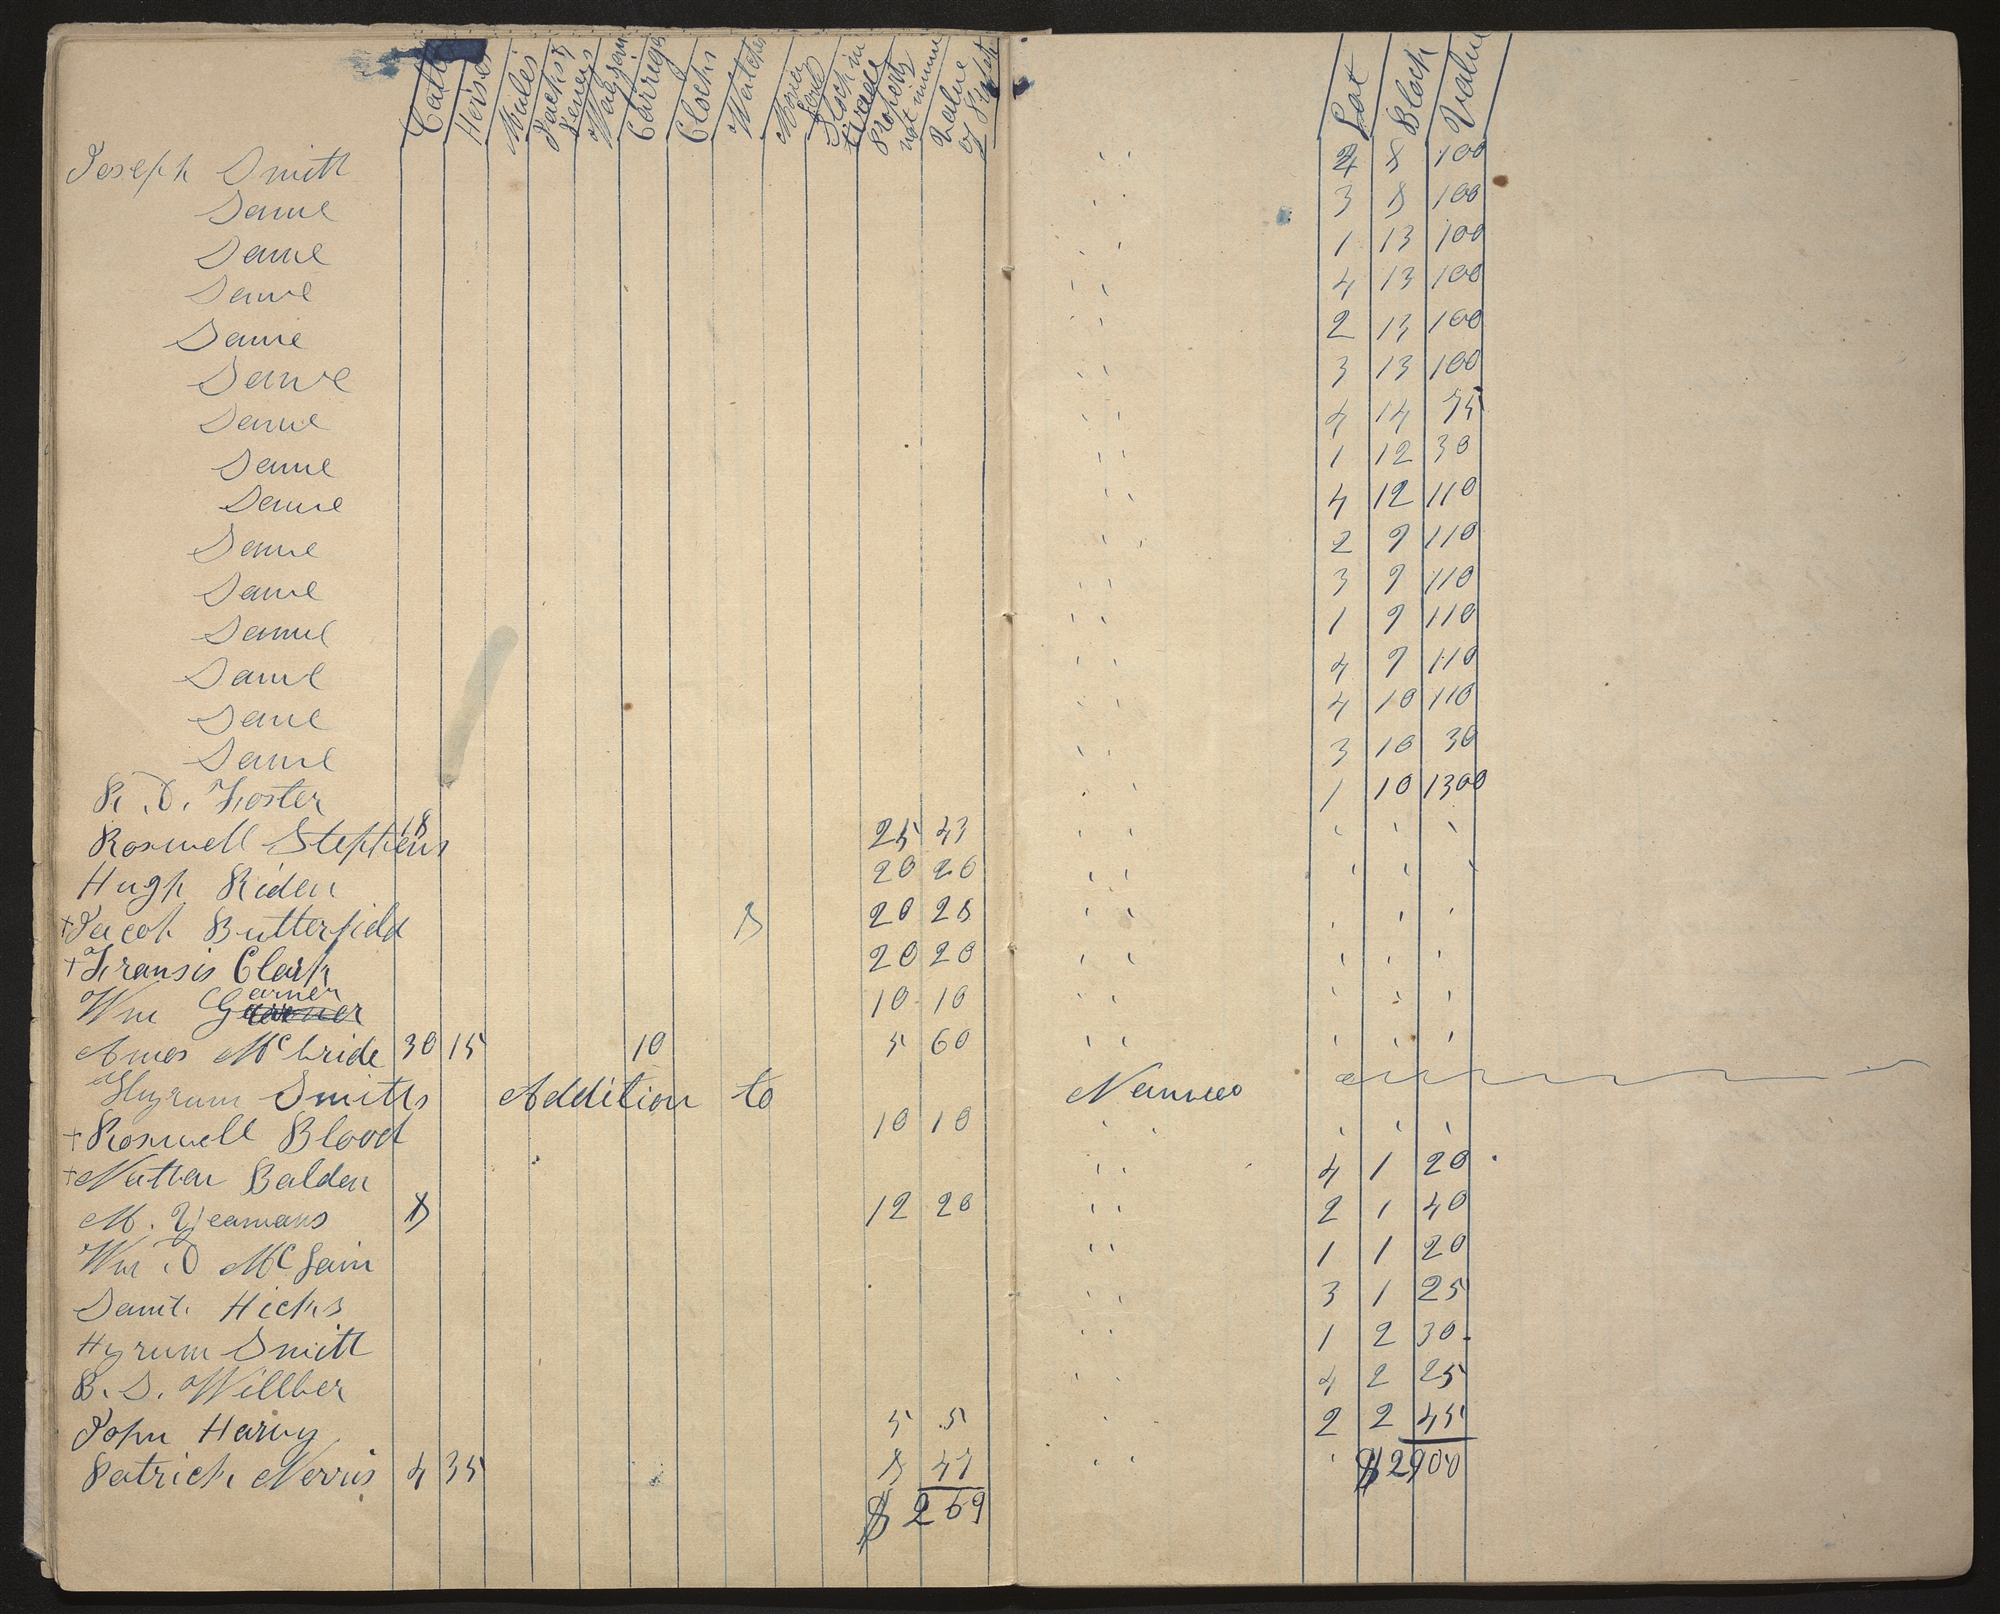 Cattle Horses Mules Jacks & Jeneys Waggons Carriges Clocks Watches Money Stock in trade Property not innume Value of Lot Block Value
Joseph Smith 4 8 100
Same 3 8 100
Same 1 13 100
Same 4 13 100
Same 2 13 100
Same 3 13 100
Same 4 14 75
Same 1 12 30
Same 4 12 110
Same 2 9 110
Same 3 9 110
Same 1 9 110
Same 4 9 110
Same 4 10 110
Same 3 10 30
R. D. Foster 1 10 1300
Roswell Stephens 18 25 43
Hugh Riden 20 20
+ Jacob Butterfield 8 20 28
+ Fransis Clark 20 20
Wm Garner 10 10
Amos McBride 30 15 10 5 60
Hyrum Smiths Addition to Nauvoo
+ Roswell Blood 10 10
+ Nathan Balden 4 1 20
M. Yeamans 8 12 20 2 1 40
Wm D McGain 1 1 20
Saml. Hicks 3 1 25
Hyrum Smith 1 2 30
B. S. Willber 4 2 25
John Harvy 5 5 2 2 45
Patrick Norris 4 35 8 47 $2900
$ 269